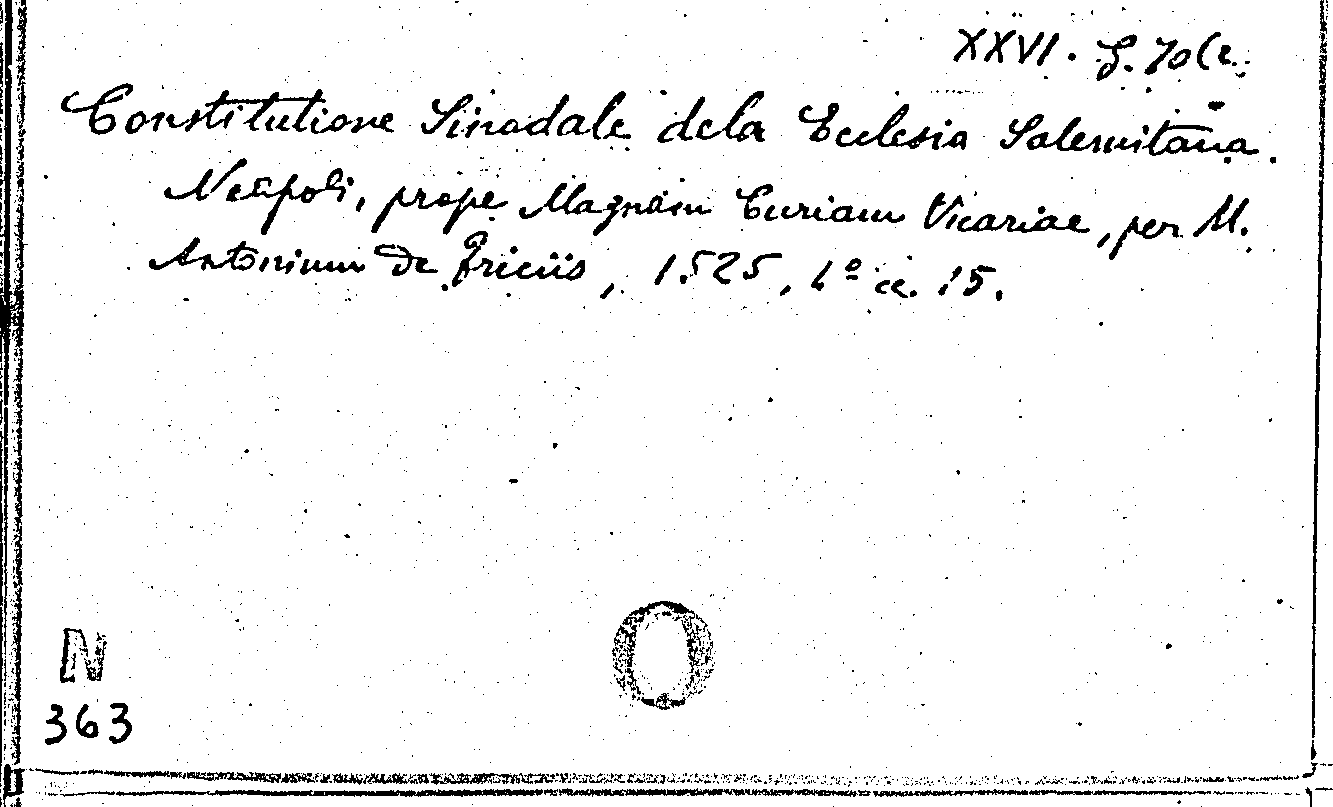 XXVI. G. 70(2.
Constitutione Sinodale dela Ecclesia Salernitana.
Neapoli, prope Magnam Curiam Vicariae, per M.
Antonium De Friciis, 1525, 4º cc. 15.
N
363